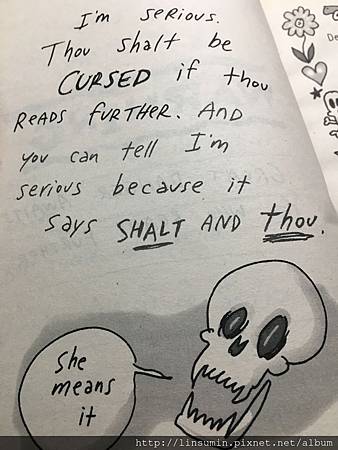 I'm serious.
Thou shalt be
CURSED if thou
READS FURTHER. AND
you can tell I'm
serious because it
says SHALT AND thou.
She
means
it
De
http://linsumin.pixnet.net/album